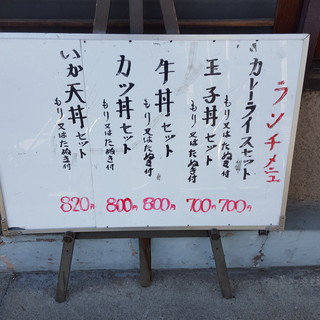 ランチメニュー
カレーライスセット
もり又はたぬき付
700円
玉子丼セット
もり又はたぬき付
700円
牛丼セット
もり又はたぬき付
800円
カツ丼セット
もり又はたぬき付
800円
いか天丼セット
もり又はたぬき付
820円